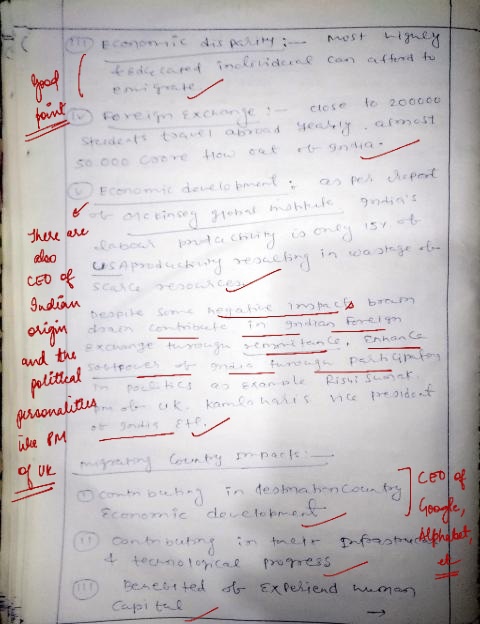 iii) Economic disparity :— Most highly
educated individual can afford to
emigrate
Good
point
iv) Foreign Exchange :— close to 200000
students travel abroad yearly. almost
50.000 Crore flow out of India.
v) Economic development : as per report
of Mckinsey global institute India's
labour productility is only 15% of
USA productivity resulting in wastage of
scarce resources.
There are
also
CEO of
Indian
origin
and the
political
personalities
like PM
of UK
Despite some negative impacts brain
drain contribute in Indian Foreign
exchange through remmittance, Enhance
softpower of India through Participatory
in politics as example Rishi Sunak.
PM of UK. Kamla haris vice president
of India etc.
Migrating Country Impacts :—
i) contributing in destination country
Economic development
CEO of
Google,
Alphabet,
ii) contributing in their Infrastruc
& technological progress
iii) Benefited of Experiend human
Capital →